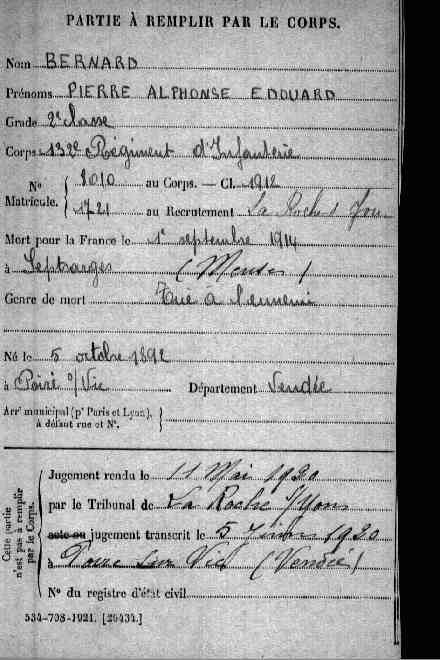 PARTIE À REMPLIR PAR LE CORPS.
Nom BERNARD
Prénoms PIERRE ALPHONSE EDOUARD
Grade 2e classe
Corps 132e Régiment d'Infanterie
No Matricule. { 8010 au Corps. — Cl. 1912
1721 au Recrutement La Roche s/ Yon
Mort pour la France le 1er septembre 1914
à Septsarges (Meuse)
Genre de mort Tué à l'ennemi
Né le 5 octobre 1892
à Poiré s/Vie Département Vendée
Arrt municipal (pr Paris et Lyon), à défaut rue et No.
Cette partie n'est pas à remplir par le Corps.
Jugement rendu le 11 Mai 1920
par le Tribunal de La Roche s/Yon
acte ou jugement transcrit le 5 Juin 1920
à Poiré sur Vie (Vendée)
No du registre d'état civil
534-708-1921. [26434.]